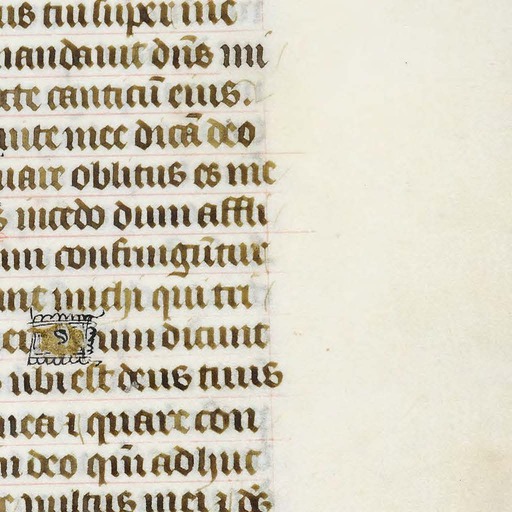 us tui super me
mandauit dñs mi
cte canticū eius.
uite mee dicā deo
uare oblitus es me
s incedo dum affli
um confringūtur
unt michi qui tri
ei s num dicunt
s ubi est deus tuus
mea ⁊ quare con
in deo qm̄ adhuc
re uultus mei ⁊ ds̄